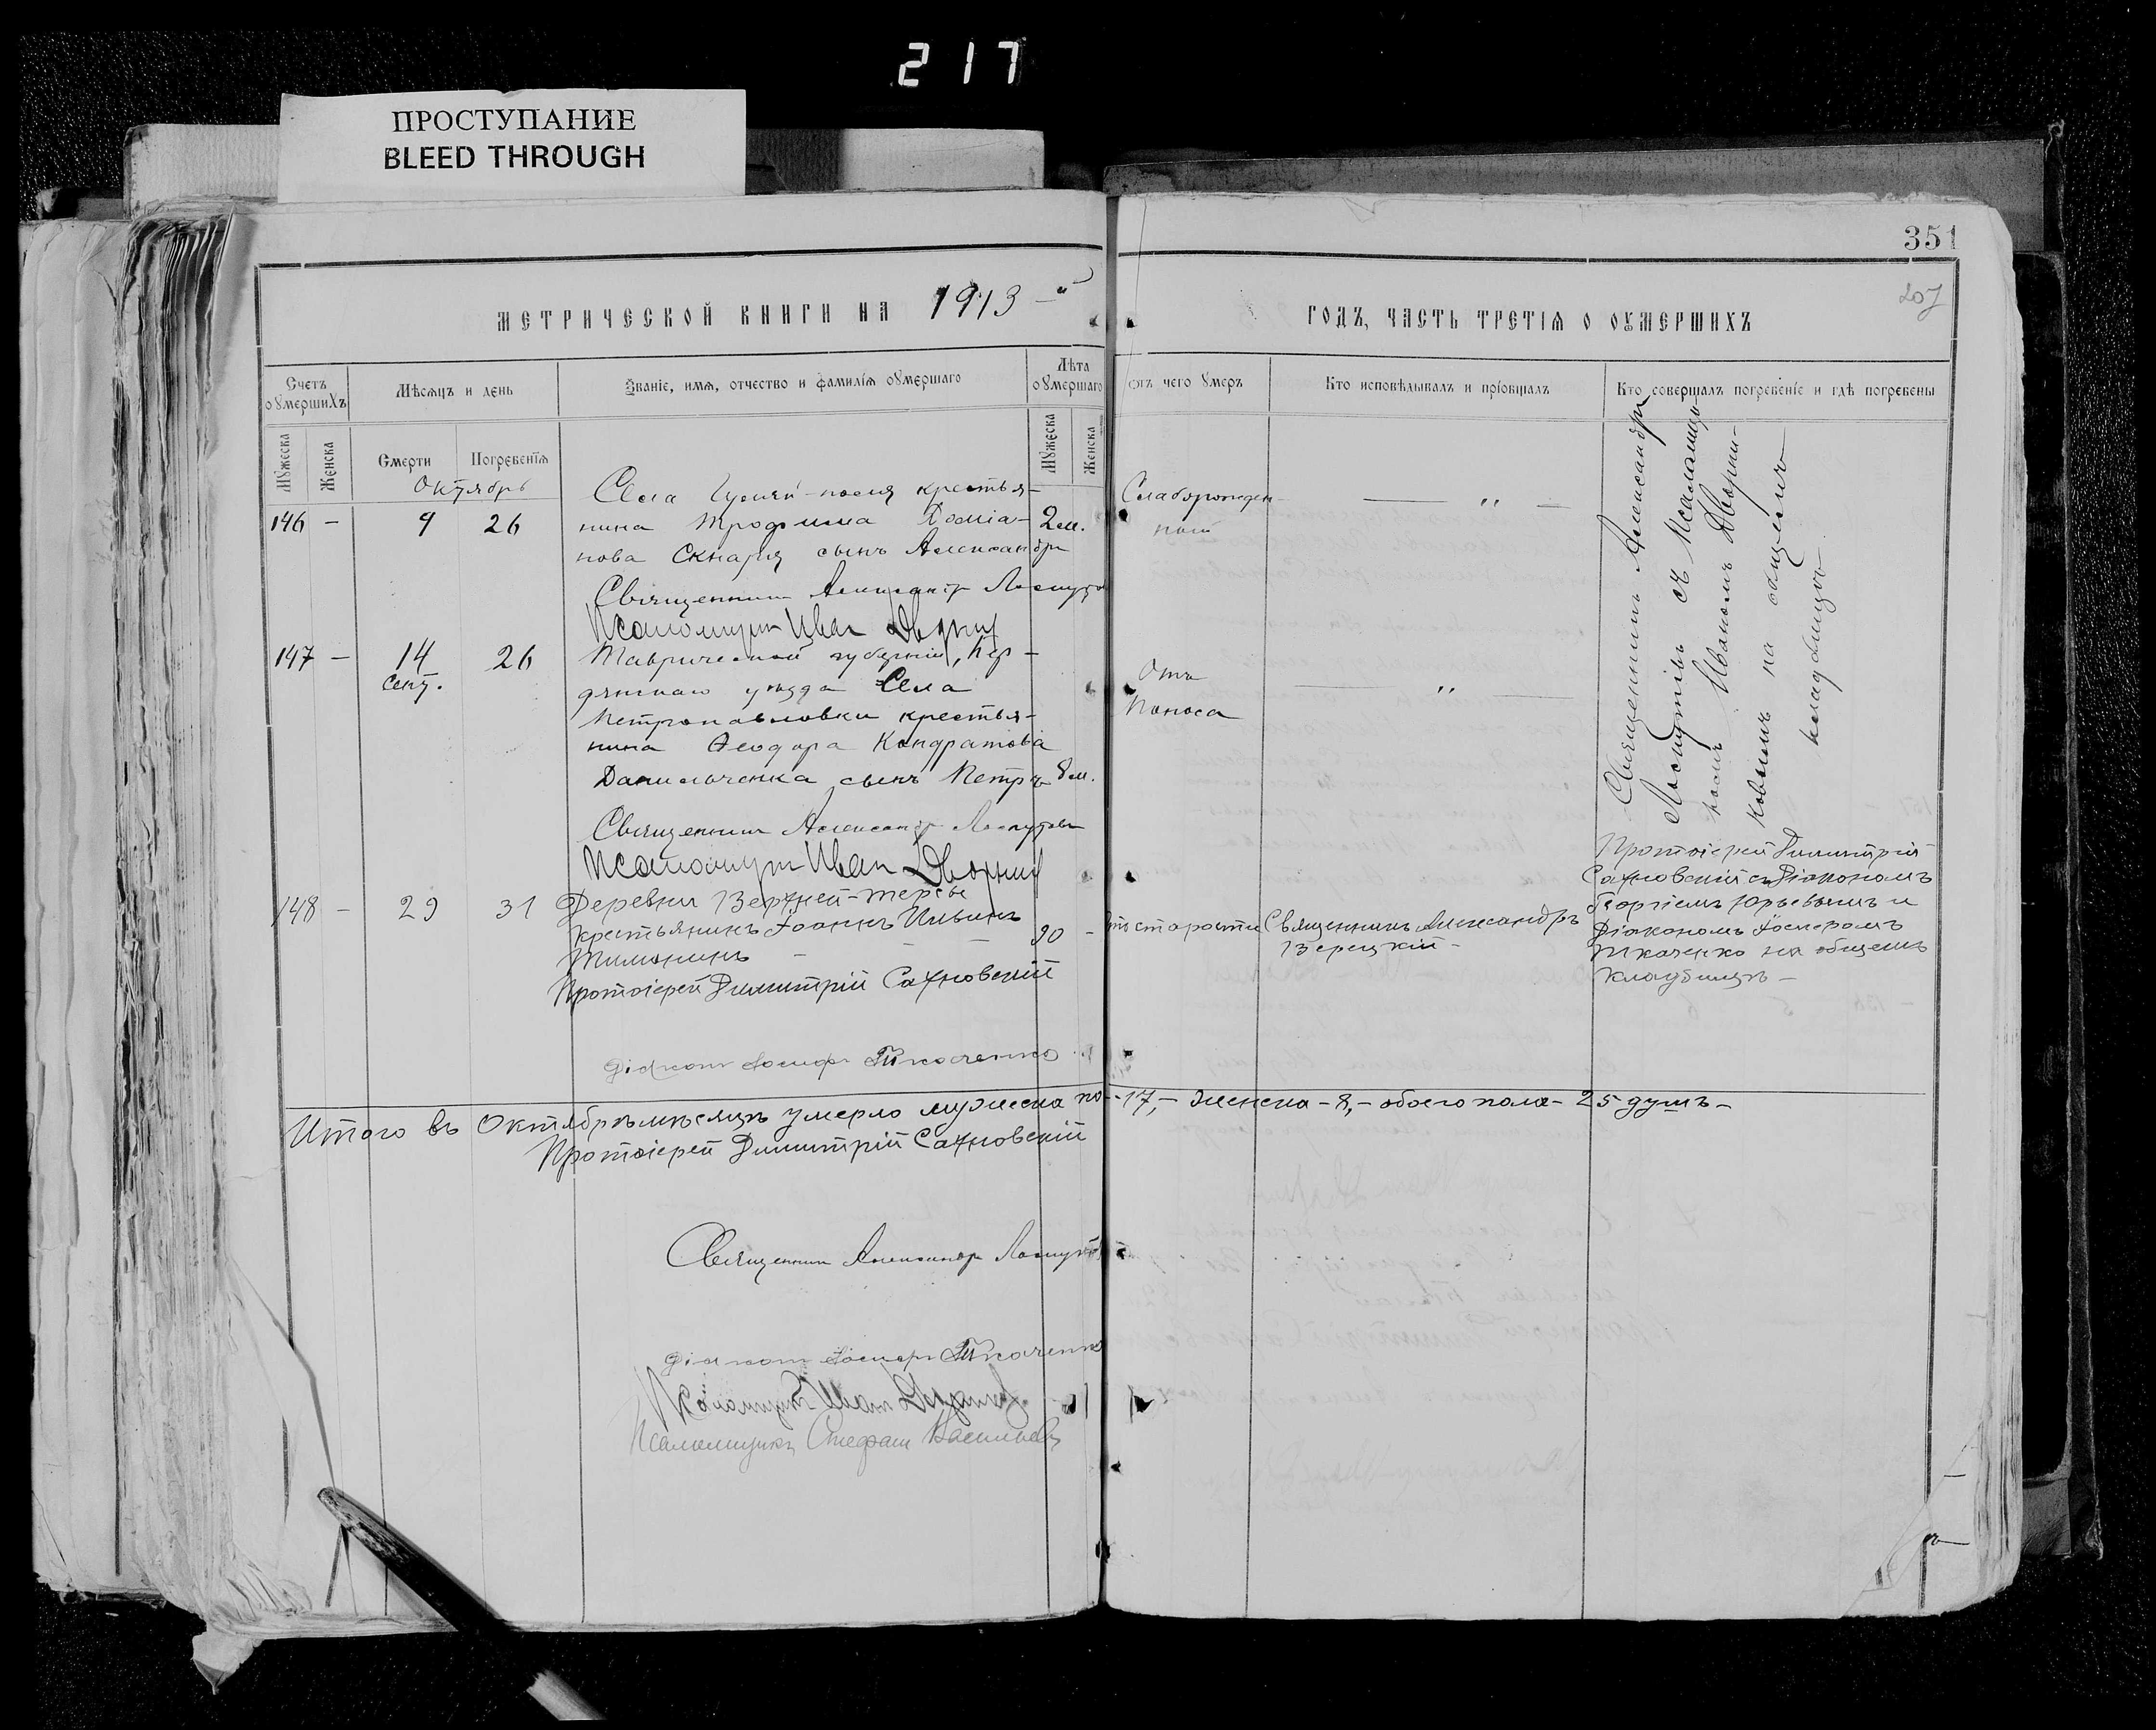 217
ПРОСТУПАНИЕ
BLEED THROUGH
351
207
МЕТРИЧЕСКОЙ КНИГИ НА 1913
ГОДЪ, ЧАСТЬ ТРЕТІЯ О ОУМЕРШИХЪ
Счетъ оумершихъ
Мѣсяцъ и день
Званіе, имя, отчество и фамилія оумершаго
Лѣта оумершаго
отъ чего умеръ
Кто исповѣдывалъ и пріобщалъ
Кто совершалъ погребеніе и гдѣ погребены
Мужеска
Женска
Смерти
Погребенія
Мужеска
Женска
Октябрь
146 - 9 26
Села крестья-
нина Трофима Даміа-
нова Скнаря сынъ Александръ
2 м.
Слаборожден-
ный
— " —
Священникъ Александръ Лоскутов
Псаломщикъ Иван Дворник
147 - 14 сент. 26
Таврической губерніи, Бер-
дянскаго уезда Села
Петропавловки крестья-
нина Ѳеодора Кондратова
Данильченка сынъ Петръ
8 м.
Отъ
поноса
— " —
Священникъ Александръ Лоскутовъ
Псаломщикъ Иван Дворник
Священникъ Александръ
Лоскутовъ съ Псаломщи-
комъ Иваномъ Дворни-
ковымъ на общемъ
кладбищѣ
148 - 29 31
Деревни Верхней-Терсы
крестьянинъ Іоаннъ Ильинъ
90 -
отъ старости
Священникъ Александръ
Верецкій -
Протоіерей Димитрій
Сахновскій съ Діакономъ
Георгіемъ Юрьевымъ и
Діакономъ Іосифомъ
Ткаченко на общемъ
кладбищѣ -
Протоіерей Димитрій Сахновскій
Діаконъ Іосифъ Ткаченко
Итого въ Октябрѣ мѣсяцѣ умерло мужеска по - 17, - женска - 8, - обоего пола - 25 душъ -
Протоіерей Димитрій Сахновскій
Священникъ Александръ Лоскутовъ
Діаконъ Іосифъ Ткаченко
Псаломщикъ Иванъ Дворник
Псаломщикъ Стефанъ Васильевъ